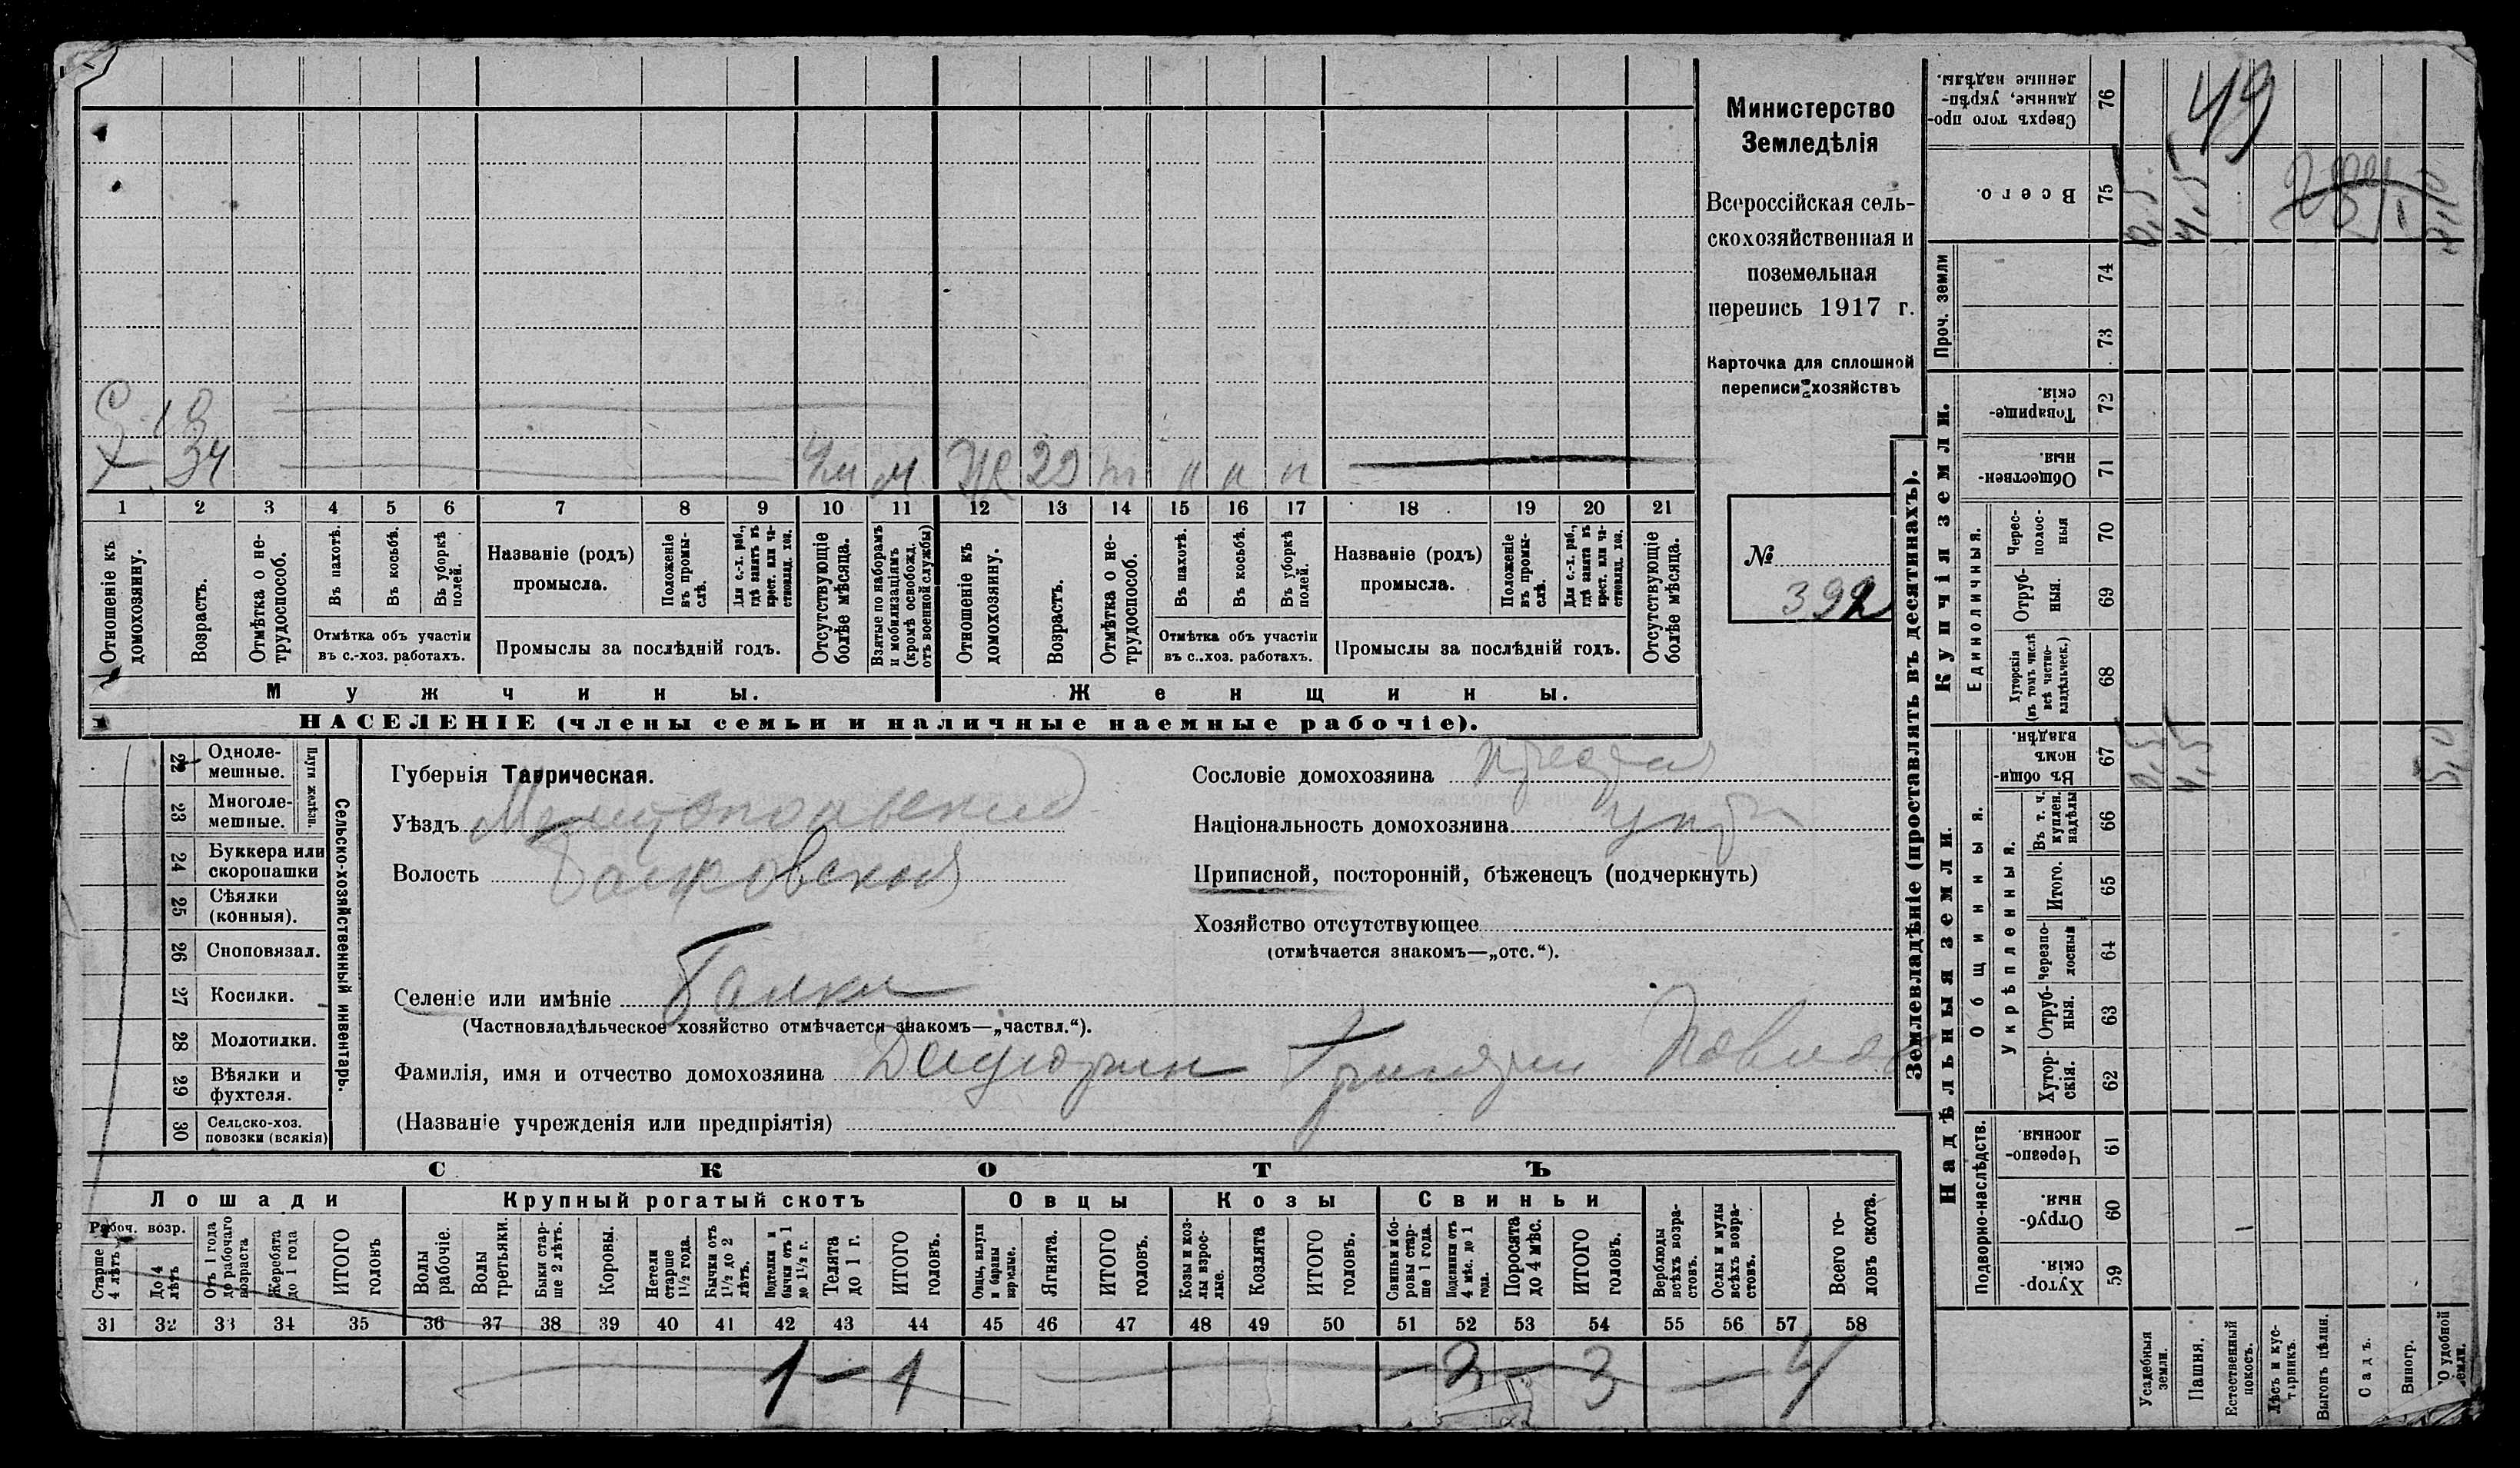 Министерство
Земледѣлія
Всероссійская сель-
скохозяйственная и
поземельная
перепись 1917 г.
Карточка для сплошной
переписи хозяйствъ
№
392
Х 34 Чм М Ж 29 п п п
1 2 3 4 5 6 7 8 9 10 11 12 13 14 15 16 17 18 19 20 21
Отношеніе къ домохозяину.
Возрастъ.
Отмѣтка о не-трудоспособ.
Въ пахотѣ.
Въ косьбѣ.
Въ уборкѣ полей.
Отмѣтка объ участіи
въ с.-хоз. работахъ.
Названіе (родъ)
промысла.
Положеніе въ промы-слѣ.
Для с.-х. раб., гдѣ занятъ въ крест. или ча-стновлад. хоз.
Промыслы за послѣдній годъ.
Отсутствующіе болѣе мѣсяца.
Взятые по наборамъ и мобилизаціямъ (кромѣ освобожд. отъ военной службы)
Отношеніе къ домохозяину.
Возрастъ.
Отмѣтка о не-трудоспособ.
Въ пахотѣ.
Въ косьбѣ.
Въ уборкѣ полей.
Отмѣтка объ участіи
въ с.-хоз. работахъ.
Названіе (родъ)
промысла.
Положеніе въ промы-слѣ.
Для с.-х. раб., гдѣ занята въ крест. или ча-стновлад. хоз.
Промыслы за послѣдній годъ.
Отсутствующіе болѣе мѣсяца.
Мужчины.
Женщины.
НАСЕЛЕНІЕ (члены семьи и наличные наемные рабочіе).
Сельско-хозяйственный инвентарь.
Плуги желѣзн.
22 Одноле-мешные.
23 Многоле-мешные.
24 Буккера или скоропашки
25 Сѣялки (конныя).
26 Сноповязал.
27 Косилки.
28 Молотилки.
29 Вѣялки и фухтеля.
30 Сельско-хоз. повозки (всякія)
Губернія Таврическая.
Уѣздъ Мелитопольский
Волость Балковская
Селеніе или имѣніе Балки
(Частновладѣльческое хозяйство отмѣчается знакомъ—„частвл.“).
Фамилія, имя и отчество домохозяина Григорий Павлов
(Названіе учрежденія или предпріятія)
Сословіе домохозяина
Національность домохозяина
Приписной, посторонній, бѣженецъ (подчеркнуть)
Хозяйство отсутствующее
(отмѣчается знакомъ—„отс.“).
СКОТЪ
Лошади
Крупный рогатый скотъ
Овцы
Козы
Свиньи
Рабоч. возр.
Старше 4 лѣтъ
До 4 лѣтъ
Отъ 1 года до рабочаго возраста
Жеребята до 1 года
ИТОГО головъ
Волы рабочіе.
Волы третьяки.
Быки стар-ше 2 лѣтъ.
Коровы.
Нетели старше 1½ года.
Бычки отъ 1½ до 2 лѣтъ.
Подтелки и бычки отъ 1 до 1½ г.
Телята до 1 г.
ИТОГО головъ.
Овцы, валухи и бараны взрослые.
Ягнята.
ИТОГО головъ.
Козы и коз-лы взрос-лые.
Козлята
ИТОГО головъ.
Свиньи и бо-ровы стар-ше 1 года.
Подсвинки отъ 4 мѣс. до 1 года.
Поросята до 4 мѣс.
ИТОГО головъ.
Верблюды всѣхъ возра-стовъ.
Ослы и мулы всѣхъ возра-стовъ.
Всего го-ловъ скота.
31 32 33 34 35 36 37 38 39 40 41 42 43 44 45 46 47 48 49 50 51 52 53 54 55 56 57 58
1 — 1 — 3 — 3 — 4
Землевладѣніе (проставлять въ десятинахъ).
Купчія земли.
Надѣльныя земли.
Сверхъ того про-данные, укрѣп-ленные надѣлы. 76
49
Всего. 75
0,5 4,5
Проч. земли 74 73
Товарище-скія. 72
Обществен-ныя. 71
Единоличныя.
Черес-полос-ныя 70
Отруб-ныя. 69
Хуторскія (въ томъ числѣ всѣ частно-владѣльческ.) 68
Общинныя.
Въ общи-номъ владѣн. 67
0,5 4,5 5,0
Укрѣпленныя.
Въ т. ч. куплен. надѣлы 66
Итого. 65
Черезпо-лосный 64
Отруб-ныя. 63
Хутор-скія. 62
Подворно-наслѣдств.
Черезпо-лосныя. 61
Отруб-ныя. 60
Хутор-скія. 59
Усадебныя земли.
Пашня.
Естественный покосъ.
Лѣсъ и кус-тарникъ.
Выгонъ цѣлин.
Садъ.
Виногр.
удобной земли.